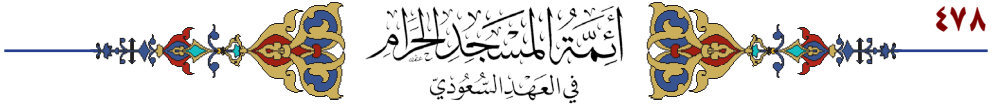 ٤٧٨
أَئِمَّةُ المَسْجِدِ الحَرَامِ
في العَهْدِ السُّعُودِيّ